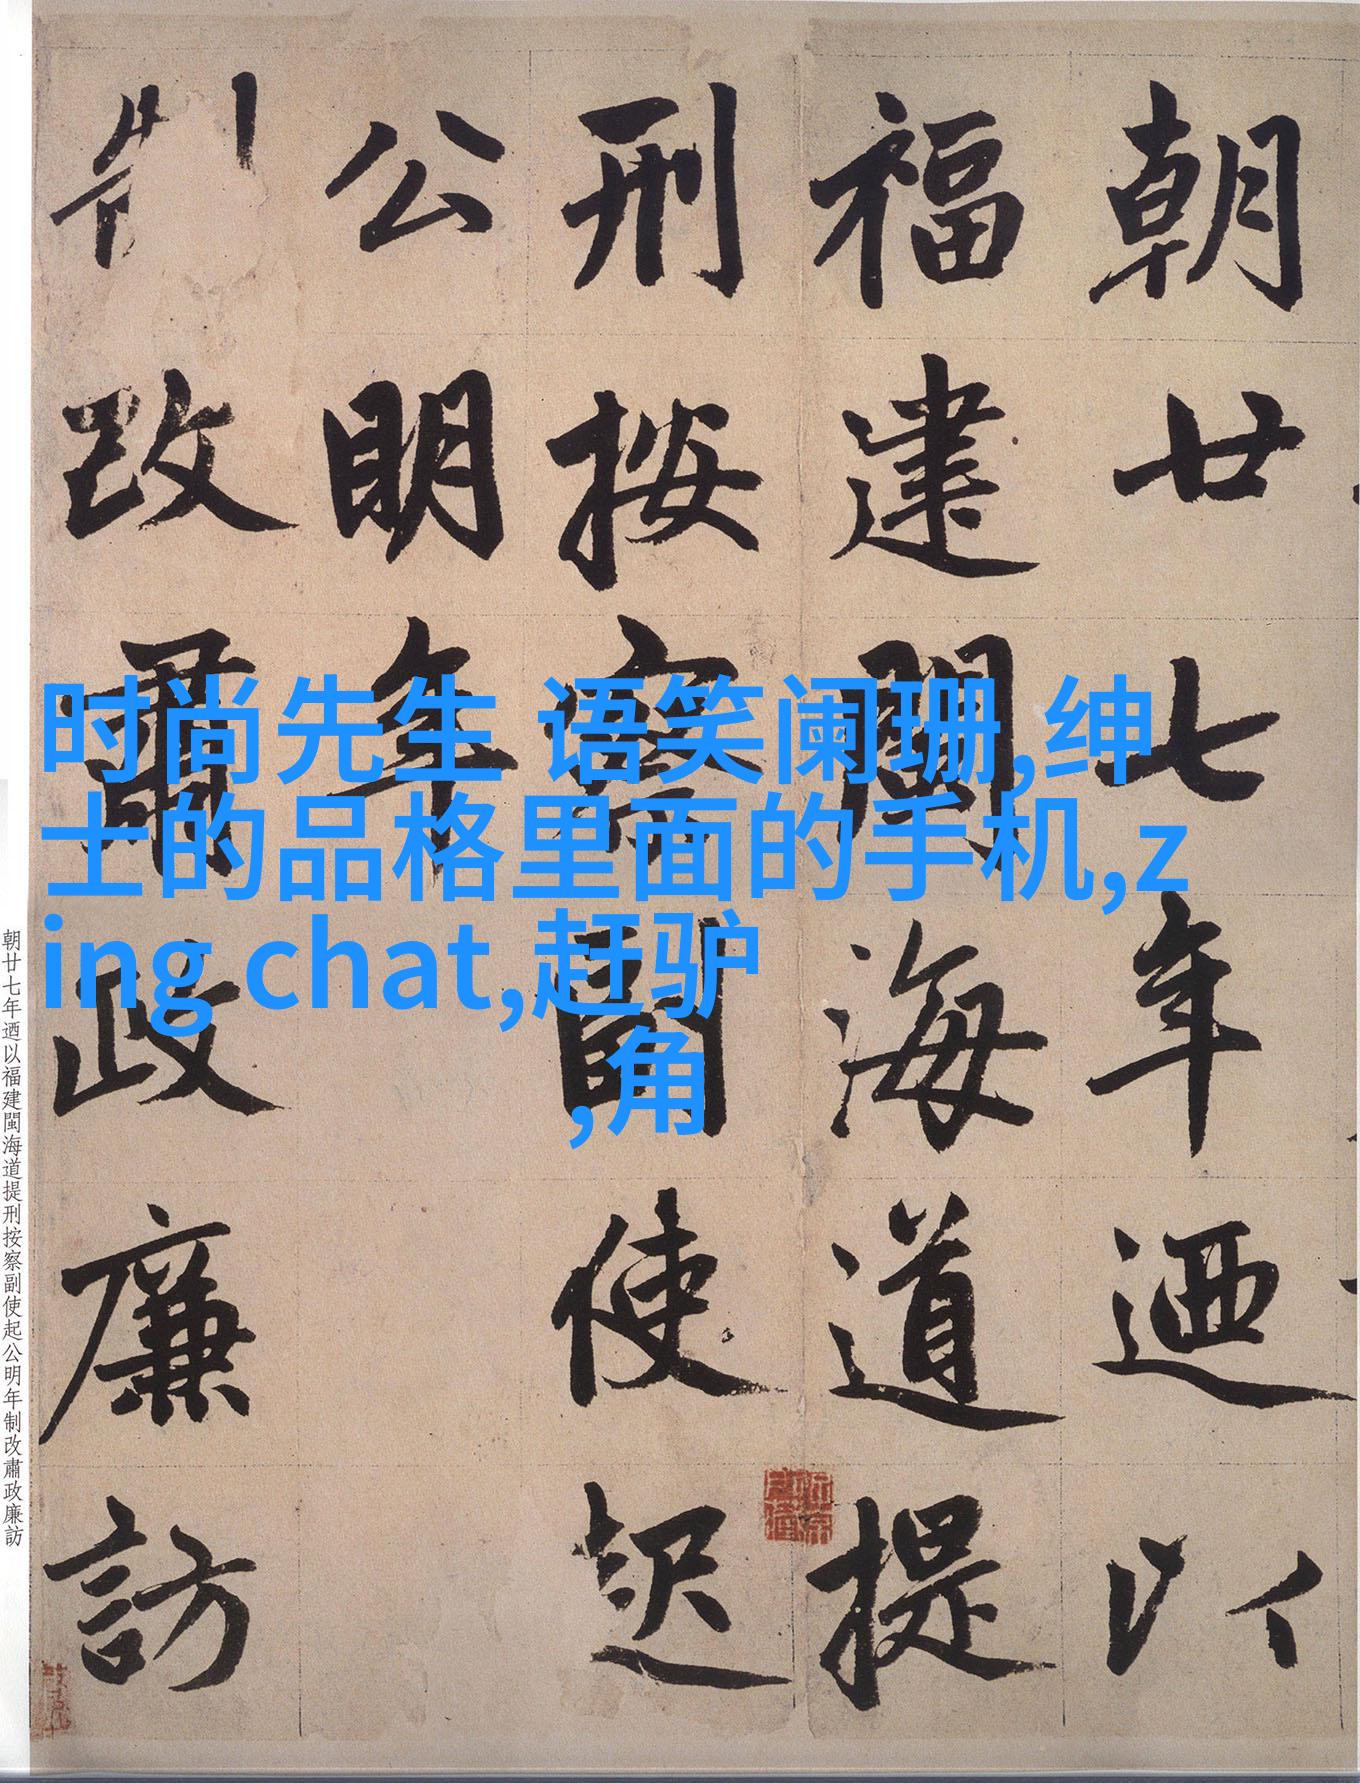 朝廿七年迺以
福建閩海道提
刑按察副使起
公明年
制改肅政廉訪
时尚先生 语笑阑珊,绅
士的品格里面的手机,z
ing chat,赶驴
,角
朝廿七年迺以福建閩海道提刑按察副使起公明年制改肅政廉訪